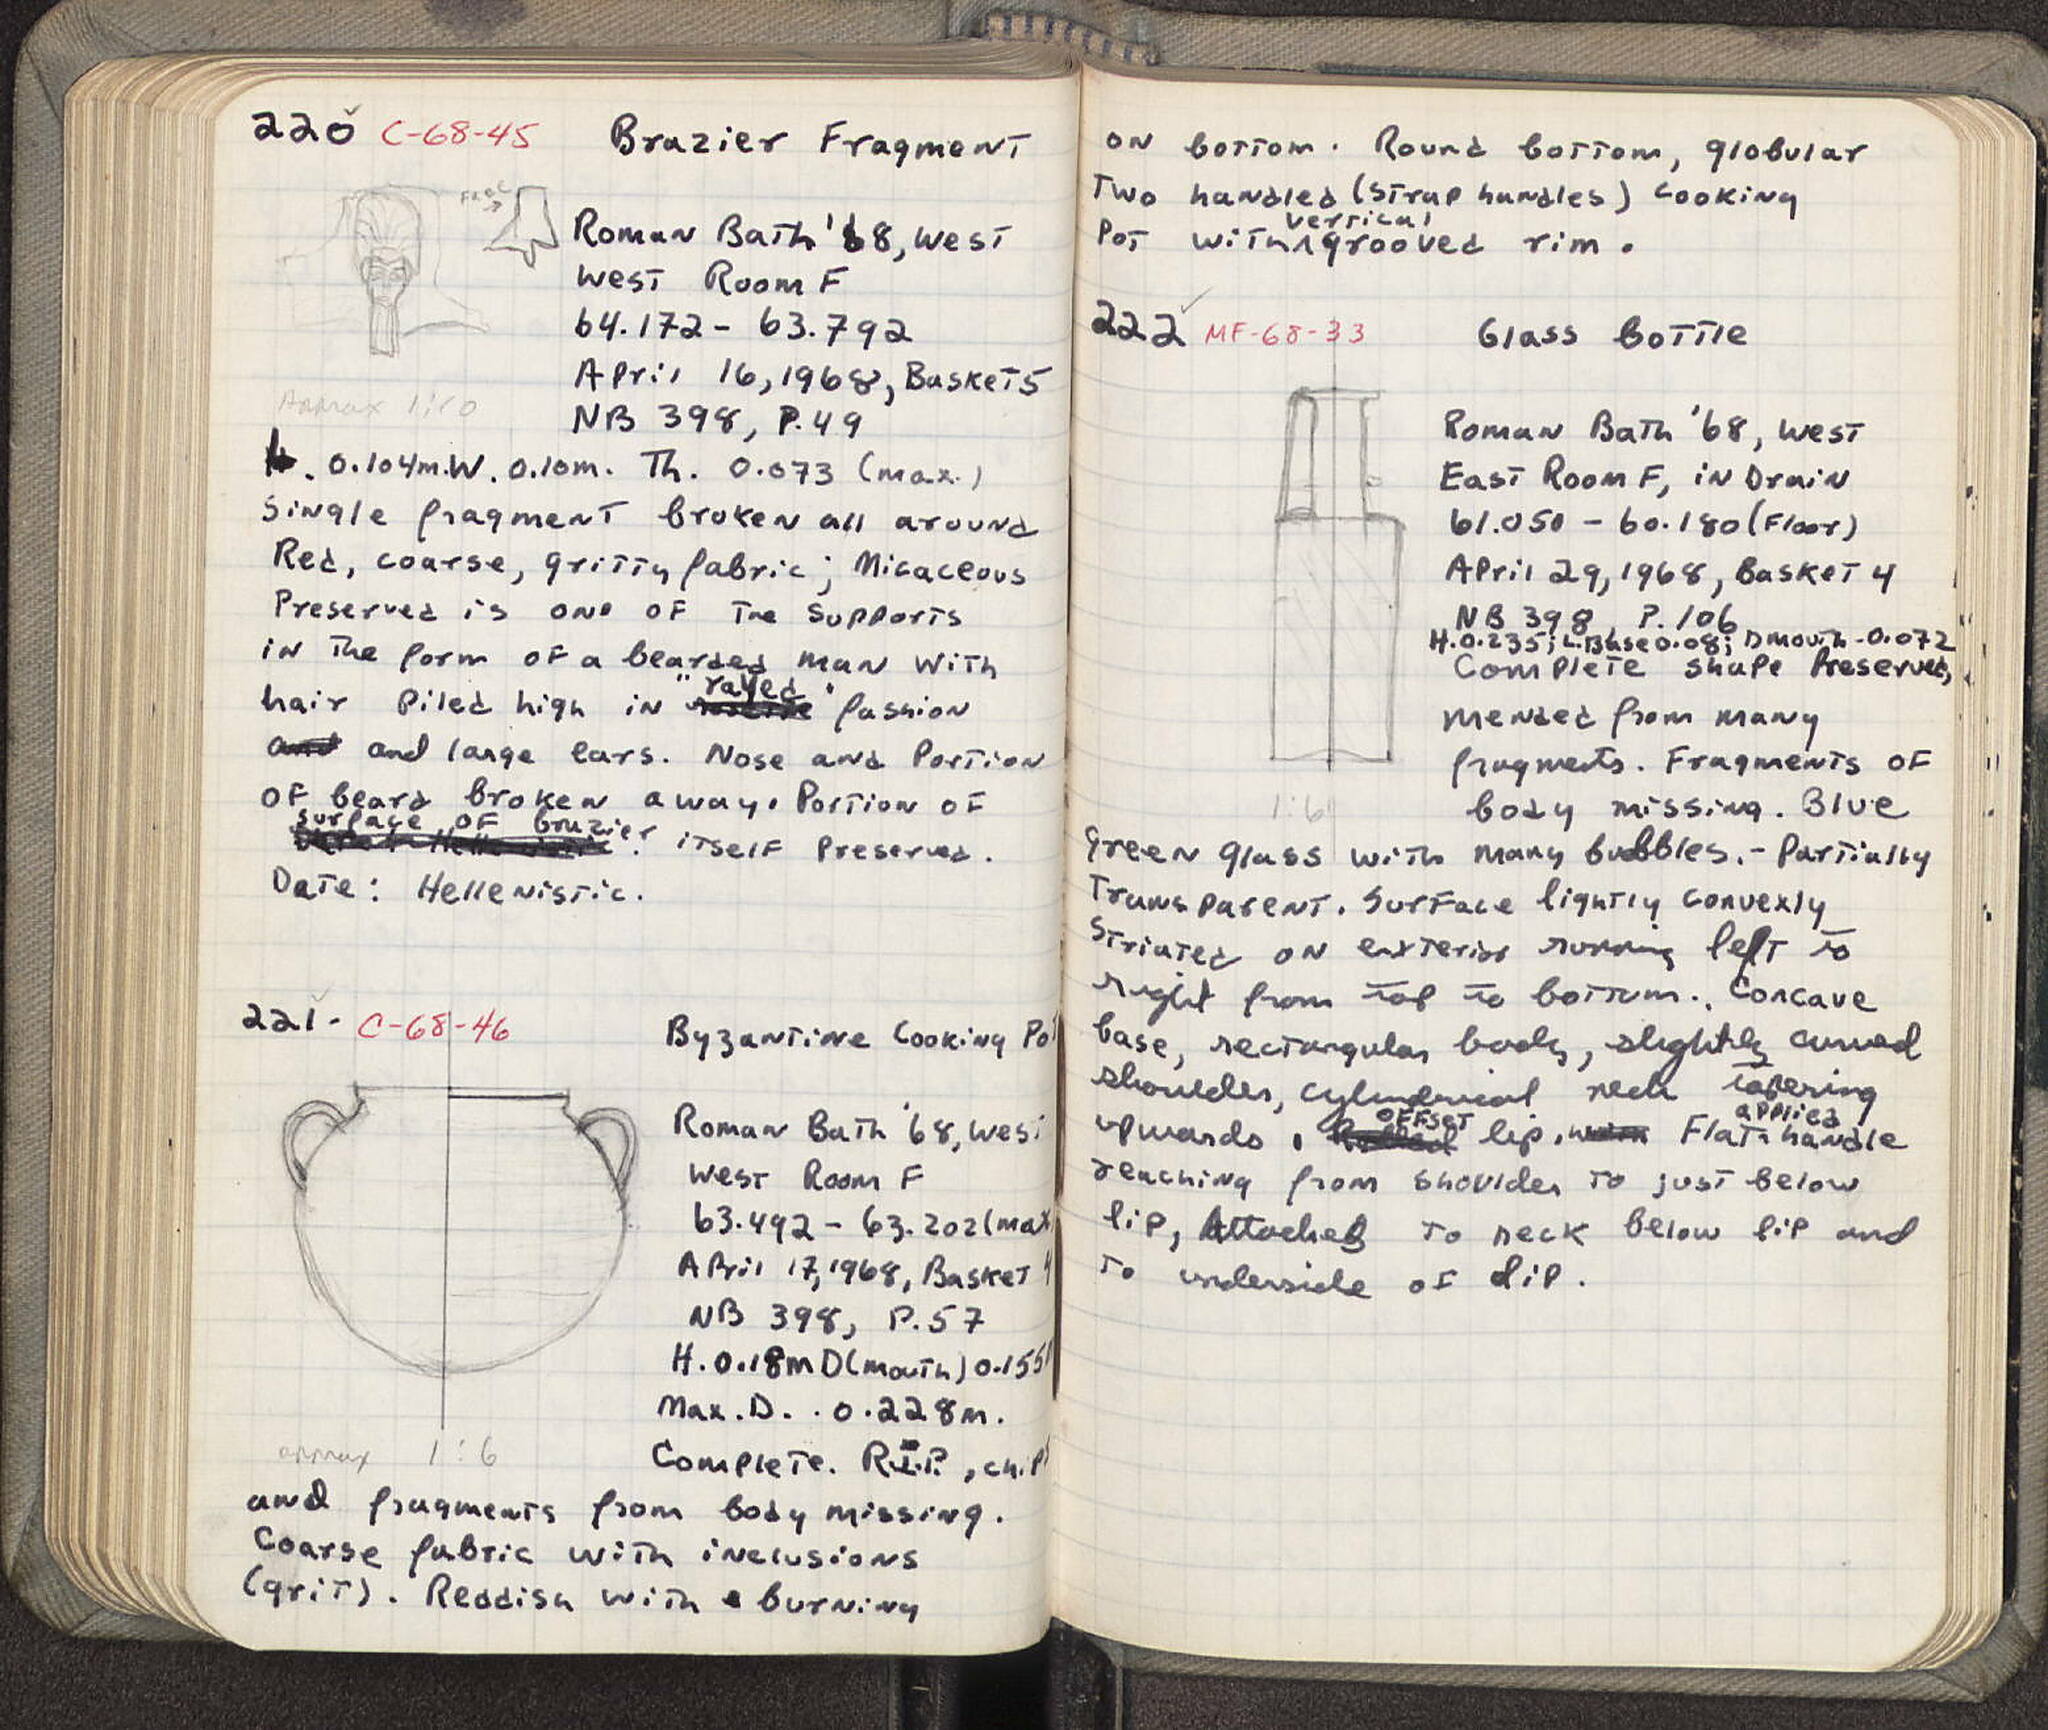 220 C-68-45 Brazier Fragment
Face
Roman Bath '68, West
West Room F
64.172 - 63.792
April 16, 1968, Basket 5
Approx 1:10
NB 398, P.49
H. 0.104m. W. 0.10m. Th. 0.073 (max.)
Single fragment broken all around
Red, coarse, gritty fabric; Micaceous
Preserved is one of the supports
in the form of a bearded man with
hair piled high in "rayed" fashion
and and large ears. Nose and Portion
of beard broken away. Portion of
surface of brazier itself preserved.
Date: Hellenistic.
221. C-68-46 Byzantine Cooking Pot
Roman Bath '68, West
West Room F
63.492 - 63.202 (max
April 17, 1968, Basket 4
NB 398, P.57
H. 0.18m D(mouth) 0.155m
Max. D. . 0.228m.
approx 1:6
Complete. R.I.P., chips
and fragments from body missing.
Coarse fabric with inclusions
(grit). Reddish with burning
on bottom. Round bottom, globular
Two handled (strap handles) cooking
Pot with vertical grooved rim.
222 MF-68-33 Glass bottle
Roman Bath '68, West
East Room F, in Drain
61.050 - 60.180 (Floor)
April 29, 1968, Basket 4
NB 398, P.106
H. 0.235; L. Base 0.08; D mouth - 0.072
Complete shape Preserved,
mended from many
fragments. Fragments of
1:6
body missing. Blue
Green glass with many bubbles. - Partially
Transparent. Surface lightly convexly
Striated on exterior running left to
right from top to bottom. Concave
base, rectangular body, slightly curved
shoulder, cylindrical neck tapering
upwards. offset lip. Flat applied handle
reaching from shoulder to just below
lip, Attached to neck below lip and
to underside of lip.